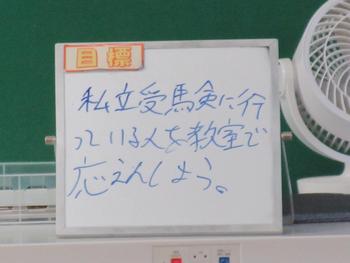 目標
私立受馬験に行
っている人を教室で
応えんしよう。